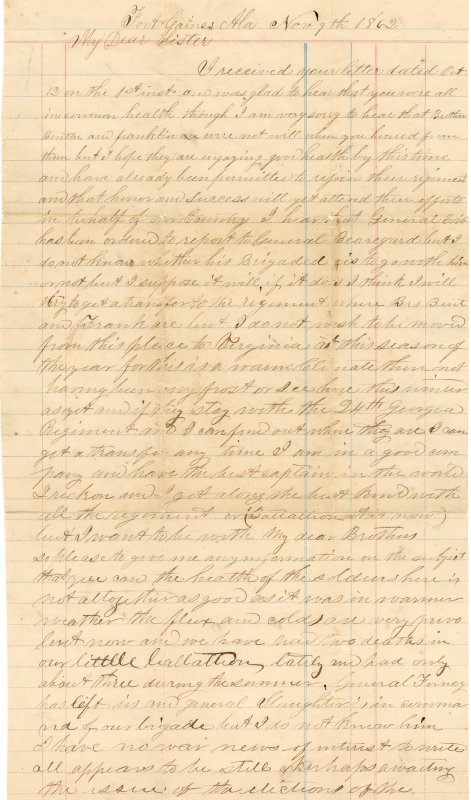 Fort Gaines Ala Nov 9th 1862
My Dear Sister
I received your letter dated Oct
12 on the 1st inst and was glad to hear that you were all
in common health though I am very sorry to hear that Brother
and franklin were not well when you heared from
them but I hope they are enjoying good health by this time
and have already been permitted to rejoin their regiment
and that honor and success will yet attend their efforts
in behalf of our Country I hear that General Cobb
has been ordered to report to General Beauregard but I
do not know whether his Brigaded is to go with him
or not but I suppose it will if it does I think I will
try to get a transfer to the regiment where Bros
and Frank are but I do not wish to be moved
from this place to Virginia at this season of
the year for this is a warm Climate there not
having been any frost or Ice here this winter
as yet and if they stay with the 24th Georgia
Regiment & I can find out where they are I can
get a transfer any time I am in a good com
pany and have the best captain in the world
I reckon and I get along the best kind with
all the regiment or (Battallion tis now)
but I want to be with My dear Brothers
so please to give me any information on the subject
that you can the health of the soldiers here is
not altogether as good as it was in warmer
weather the flux and colds are very prevo
lent now and we have had two deaths in
our little ballattion lately and had only
about three during the summer General Forney
has left us and general Slaughter is in comma
nd of our brigade but I do not know him
I have no war news of interest to write
all appears to be still perhaps awaiting
the issue of the elections of the